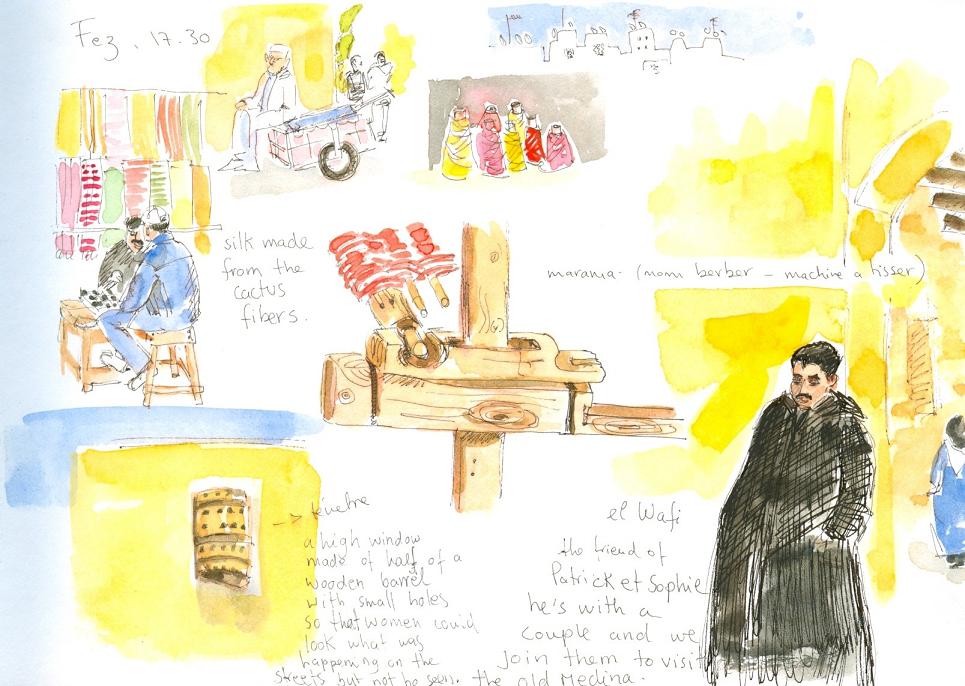 Fez, 17.30
silk made
from the
cactus
fibers.
marama- (nom berber - machine a tisser)
fenetre
a high window
made of half of a
wooden barrel
with small holes
so that women could
look what was
happening on the
streets but not be seen.
el Wafi
the friend of
Patrick et Sophie
he's with a
couple and we
join them to visit
the old Medina.